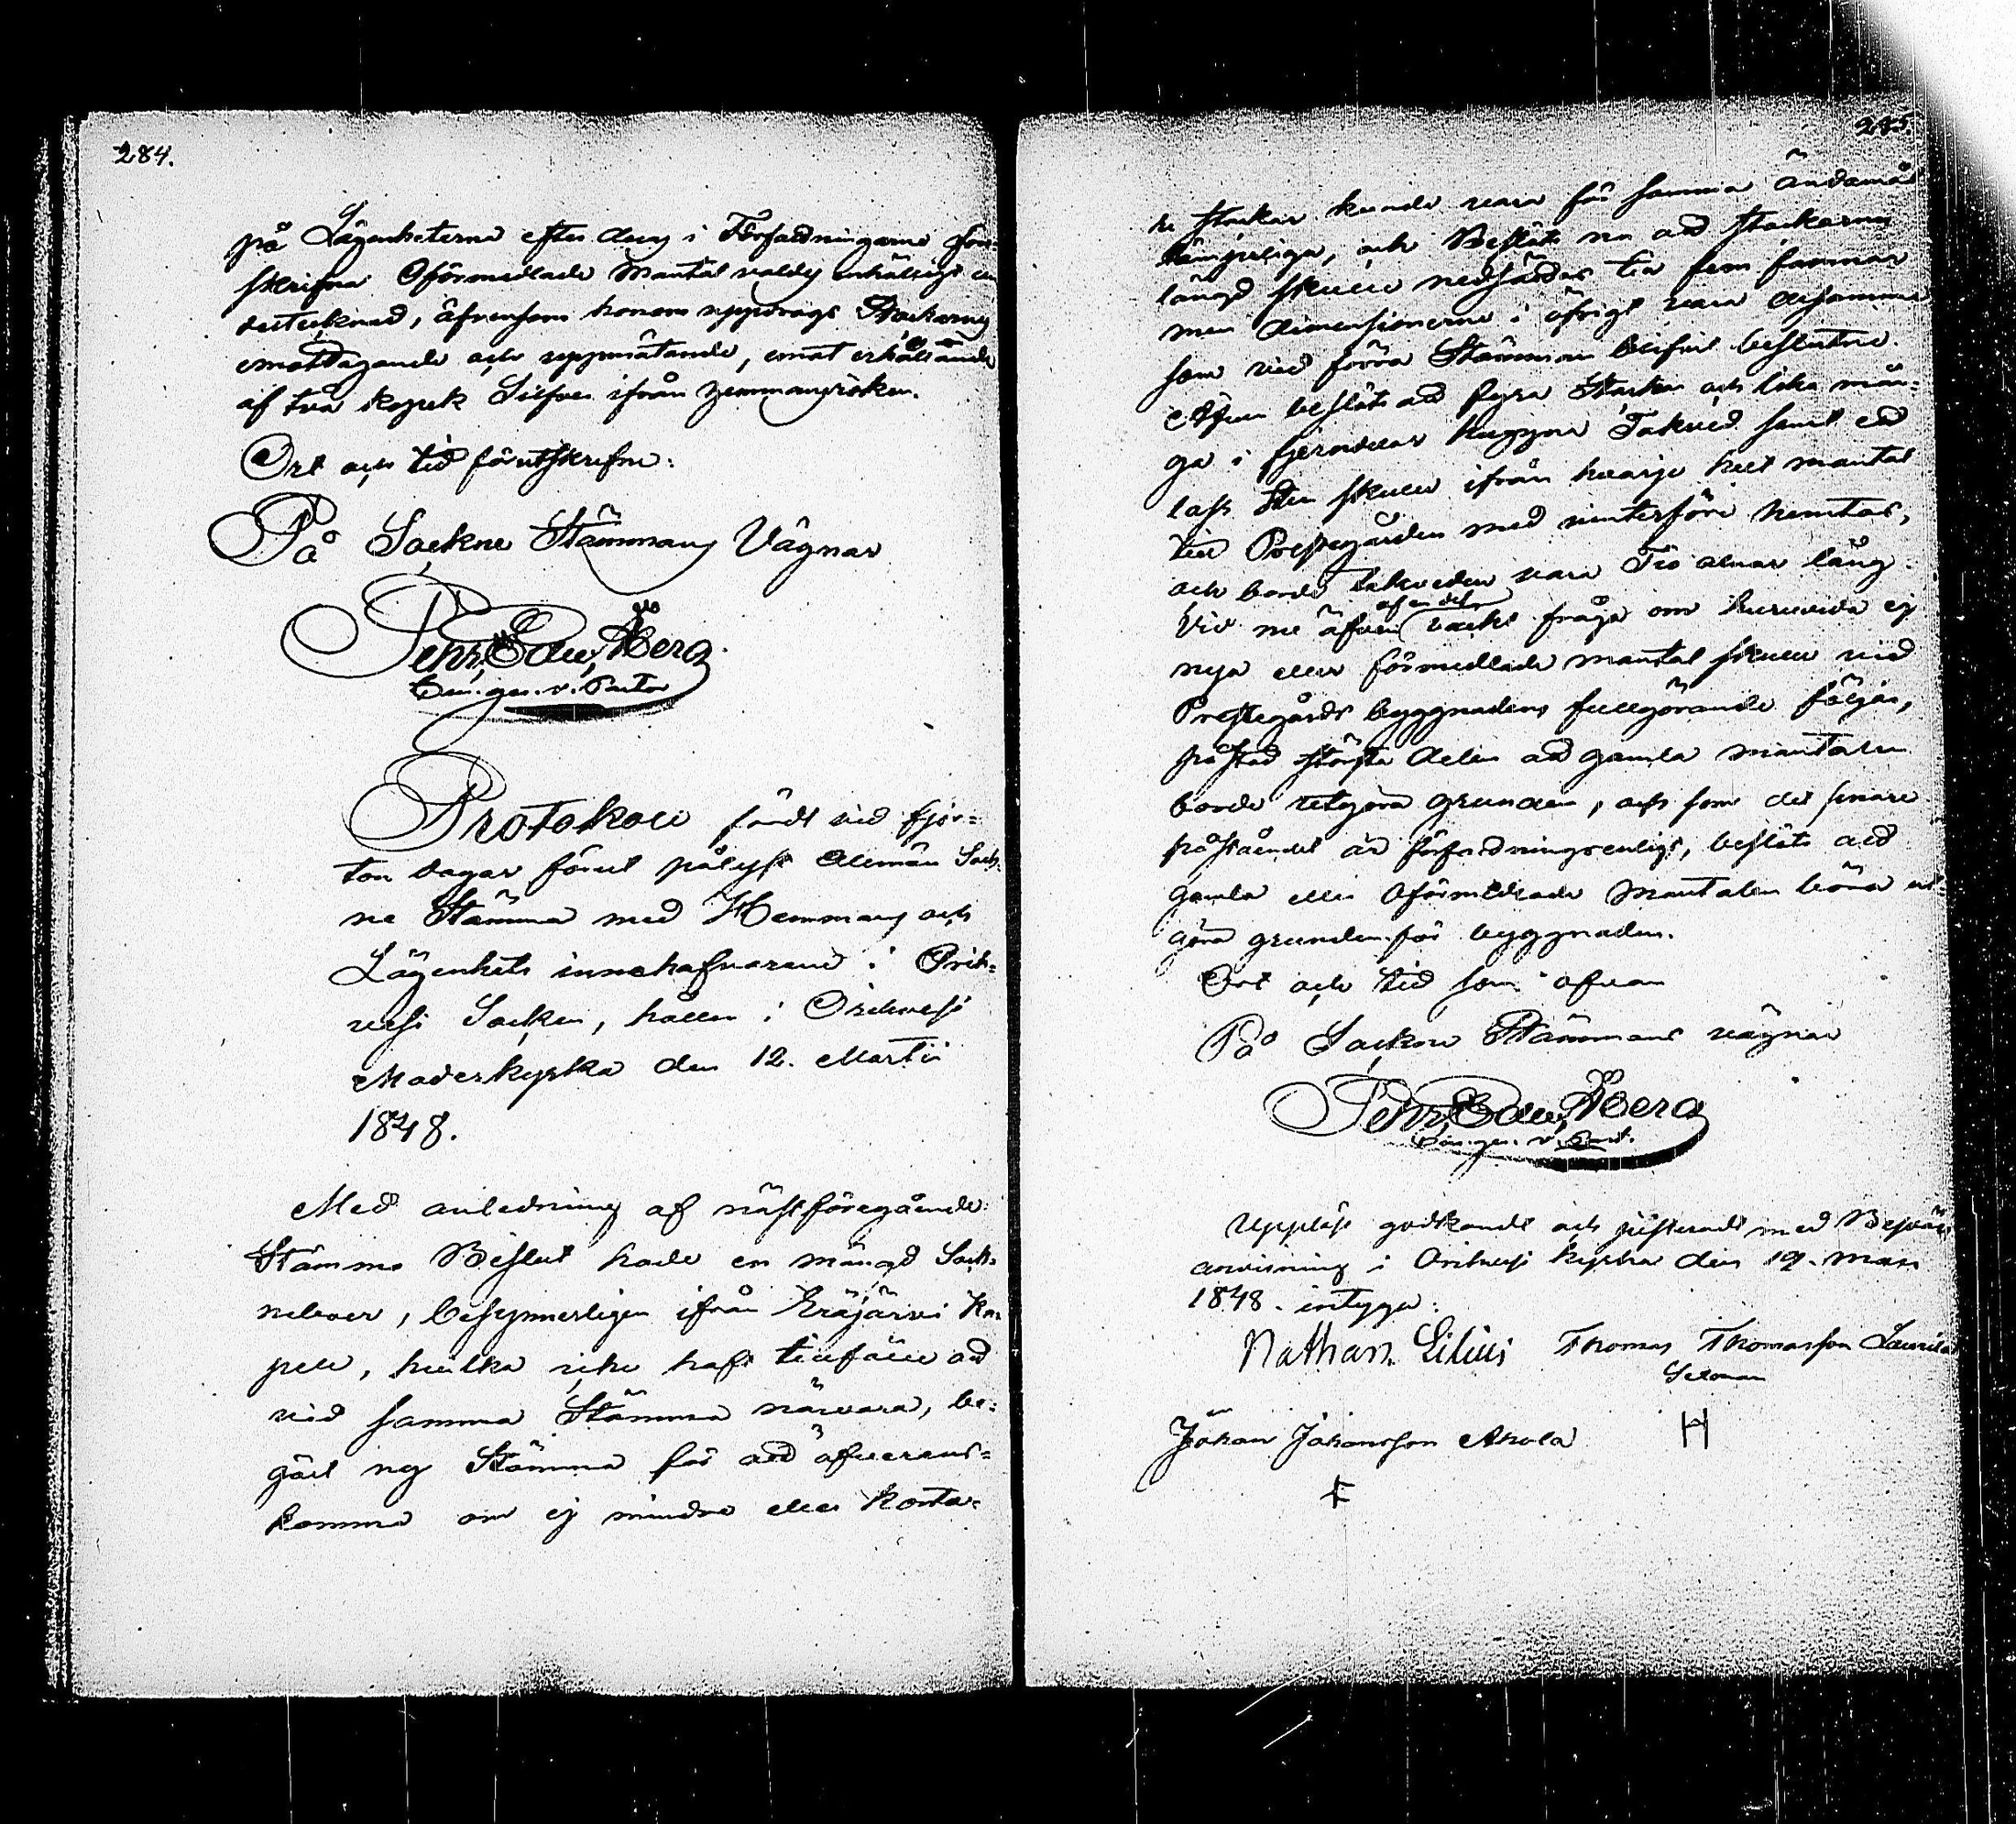 284.
på Lägenheterne efter deras i Författningarne före-
skrifna Oförmedlade Mantal valdes enhälligt un
dertecknad, äfvensom honom uppdrogs Stockarnes
emottagande och uppmätande, emot erhållande
af två kopek Silfver ifrån hemmansröken.
Ort och tid förutskrefne:
På Sockne Stämmans Vägnar
Pehr Edv. Åberg
Con. gen. v. Pastor
Protokoll fördt vid fjor-
ton dagar förut pålyst Allmän Sock-
ne Stämma med Hemmans och
Lägenhets innehafvarene i Orih-
vesi Socken, hållen i Orihvesi
Moderkyrka den 12. Martii
1848.
Med anledning af nästföregående
Stämmo Beslut hade en mängd Sock-
neboer, besynnerligen ifrån Eräjärvi Ka-
pell, hvilka icke haft tillfälle ad
vid samma Stämma närvara, be-
gärt ny Stämma för ad öfverens-
komma om ej mindre eller korta-
285.
re stockar kunde vara för samma ändamål
tämjeliga, och Beslöts nu ad stockarnes
längd skulle nedsättas till fem famnar
men dimensionerne i öfrigt vara desamma
som vid förra Stämman blifvit beslutne.
Äfven beslöts ad fyra Stockar och lika mån-
ga i fjerndelar huggna Takved samt ett
lass Sten skulle ifrån hvarje helt mantal
till Prestegården med vinterföre hemtas,
och borde takveden vara Tio alnar lång.
Vid nu äfven af en del väckt fråga om huruvida ej
nya eller förmedlade mantal skulle vid
Prestegårds byggnadens fullgörande följas,
påstod största delen ad gamla mantalen
borde utgöra grunden, och som det senare
påståendet är författningsenligt, beslöts ad
gamla eller Oförmedlade Mantalen böra ut-
göra grunden för byggnaden.
Ort och tid som ofvan
På Sockne Stämmans vägnar
Pehr Edv. Åberg
Con. gen. v. Past.
Uppläst godkändt och justeradt med Besvärs
anvisning i Orihvesi kyrka den 19. Mars
1848. intyga:
Nathan. Lilius Thomas Thomasson Laurila
Sexman
Johan Johansson Ahola H